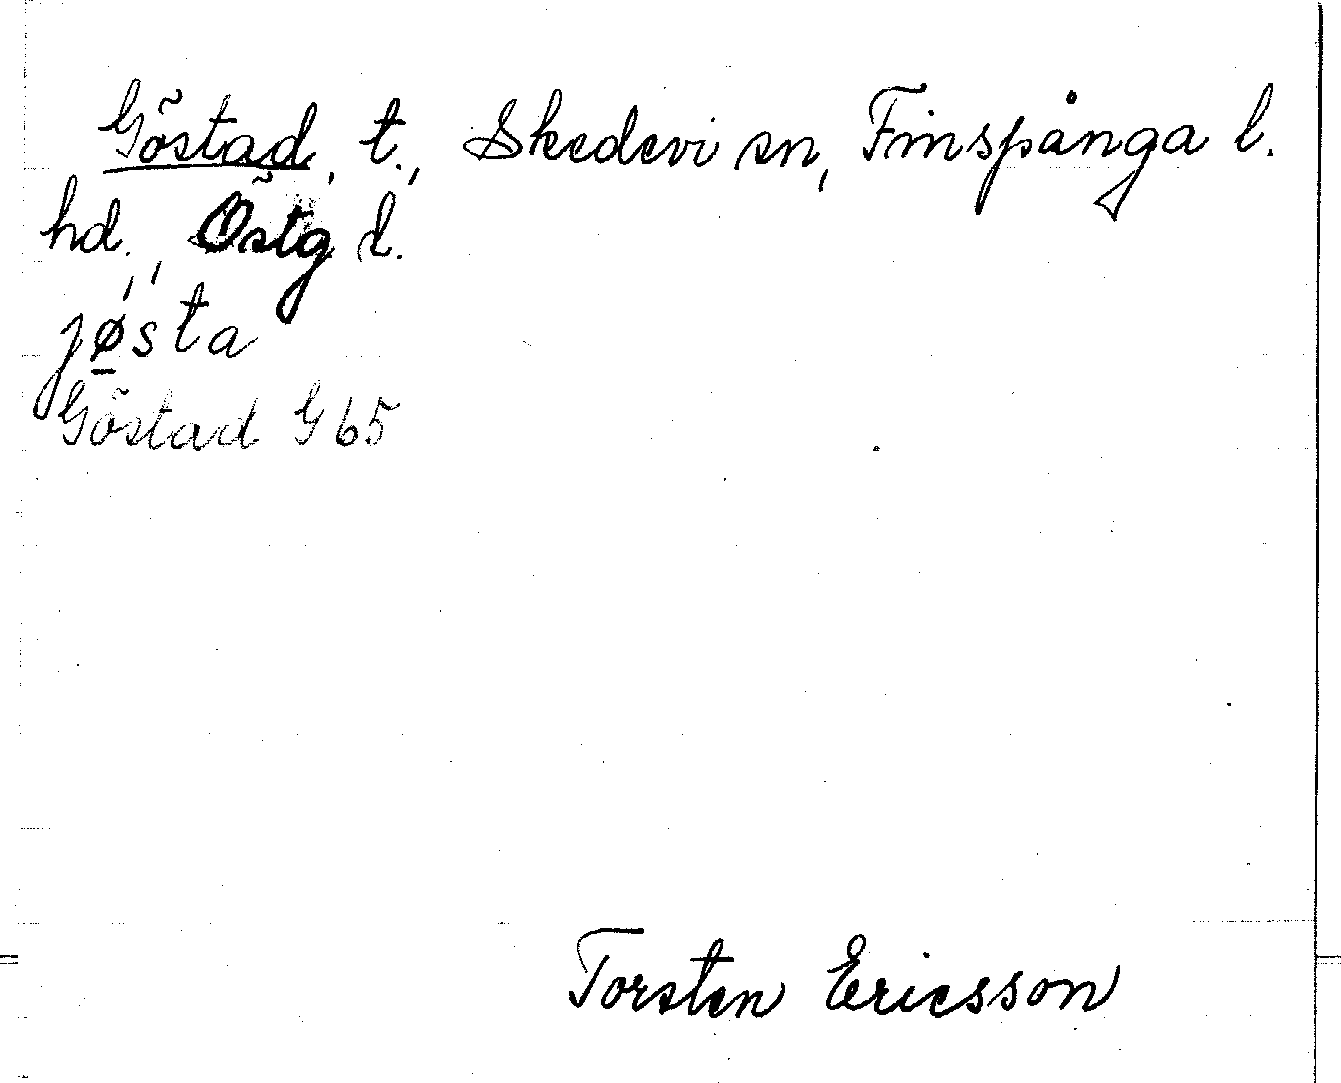 Göstad, t., Skedevi sn, Finspånga l.
hd., Östg l.
jø̠sta
Göstad G 65
Torsten Ericsson